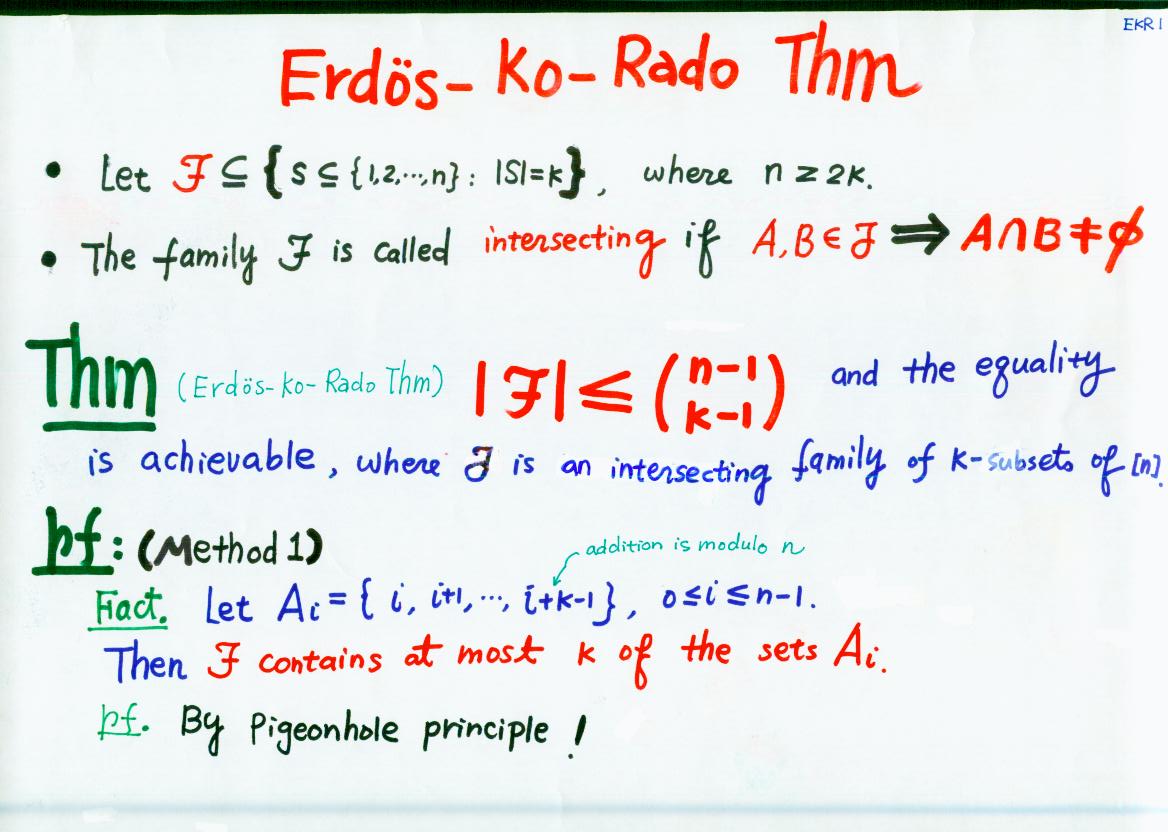 EKR 1
Erdös-Ko-Rado Thm
• Let ℱ ⊆ {S ⊆ {1,2,...,n} : |S|=k}, where n ≥ 2k.
• The family ℱ is called intersecting if A,B ∈ ℱ ⟹ A∩B ≠ ϕ
Thm (Erdös-Ko-Rado Thm) |ℱ| ≤ (n-1 k-1) and the equality
is achievable, where ℱ is an intersecting family of k-subsets of [n].
pf: (Method 1)
addition is modulo n
Fact. Let Ai = { i, i+1, ..., i+k-1}, 0≤i≤n-1.
Then ℱ contains at most k of the sets Ai.
pf. By Pigeonhole principle !